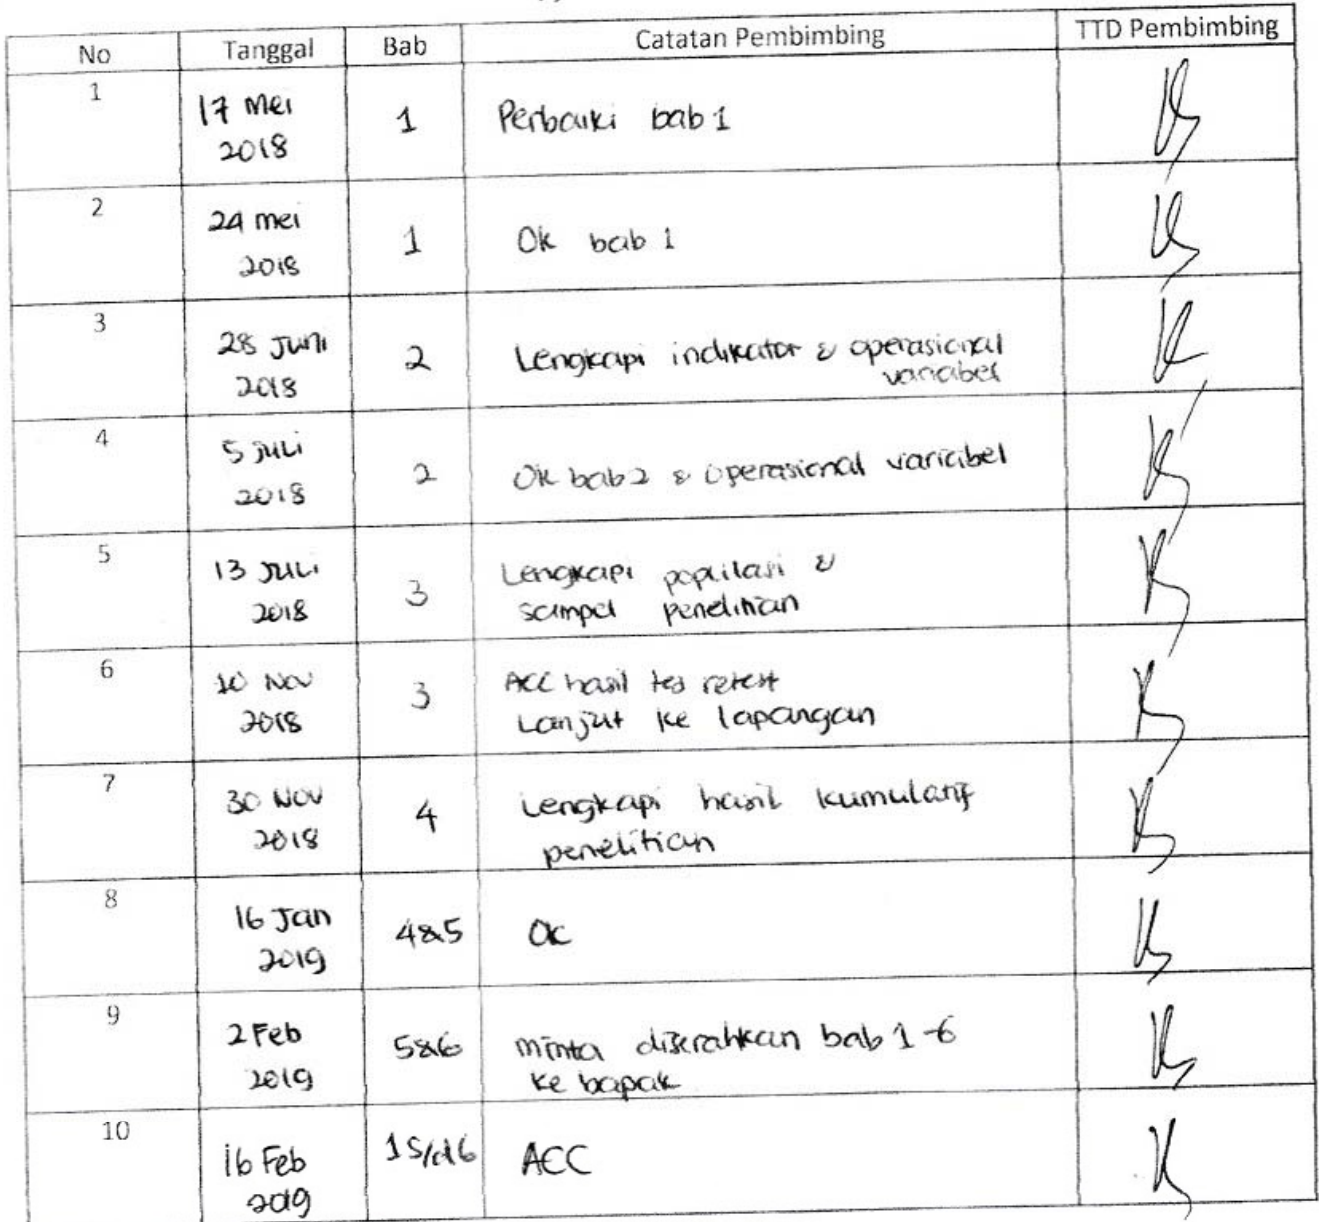 No Tanggal Bab Catatan Pembimbing TTD Pembimbing
1
17 Mei
2018
1
Perbaiki bab 1
2
24 mei
2018
1
Ok bab 1
3
28 Juni
2018
2
Lengkapi indikator & operasional
variabel
4
5 Juli
2018
2
Ok bab 2 & operasional variabel
5
13 Juli
2018
3
Lengkapi populasi &
sampel penelitian
6
10 Nov
2018
3
ACC hasil tes retest
Lanjut ke lapangan
7
30 Nov
2018
4
Lengkapi hasil
penelitian
8
16 Jan
2019
4&5
Ok
9
2 Feb
2019
5&6
minta diserahkan bab 1-6
ke bapak
10
16 Feb
2019
1 S/d 6
ACC